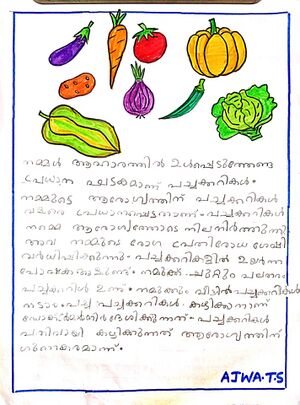 നമ്മൾ ആഹാരത്തിൽ ഉൾപ്പെടുത്തേണ്ട
പ്രധാന ഘടകമാണ് പച്ചക്കറികൾ.
നമ്മുടെ ആരോഗ്യത്തിന് പച്ചക്കറികൾ
വളരെ പ്രധാനപ്പെട്ടതാണ്. പച്ചക്കറികൾ
നമ്മെ ആരോഗ്യത്തോടെ നിലനിർത്തുന്നു.
അവ നമ്മുടെ രോഗ പ്രതിരോധ ശേഷി
വർധിപ്പിക്കുന്നു. പച്ചക്കറികളിൽ ഉയർന്ന
പോഷകങ്ങളുണ്ട്. നമുക്ക് ചുറ്റും പലതരം
പച്ചക്കറികൾ ഉണ്ട്. നമുക്കും വീട്ടിൽ പച്ചക്കറികൾ
നടാം. പച്ച പച്ചക്കറികൾ കഴിക്കാനാണ്
ഡോക്ടർമാർ നിർദ്ദേശിക്കുന്നത്. പച്ചക്കറികൾ
പതിവായി കഴിക്കുന്നത് ആരോഗ്യത്തിന്
ഗുണകരമാണ്.
AJWA.T.S